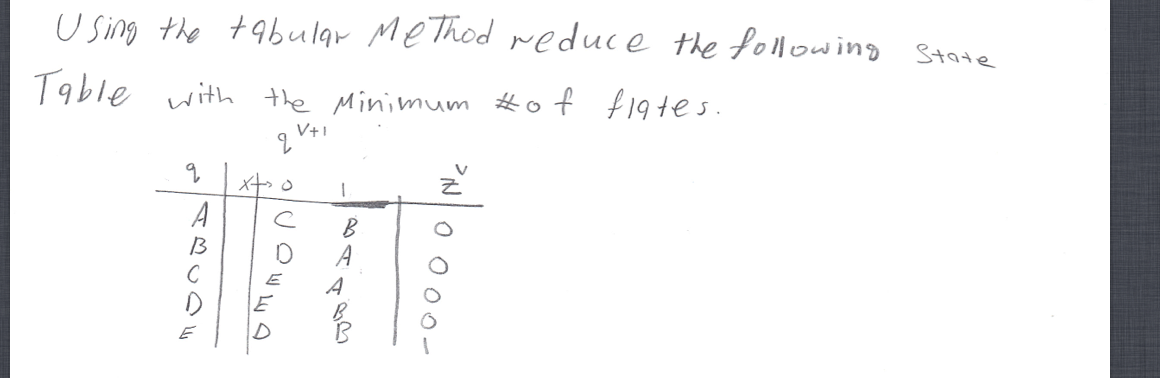 Using the tabular Method reduce the following State
Table with the Minimum # of flates.
q^{v+1}
q x→ 0 1 z^v
A C B 0
B D A 0
C E A 0
D E B 0
E D B 1